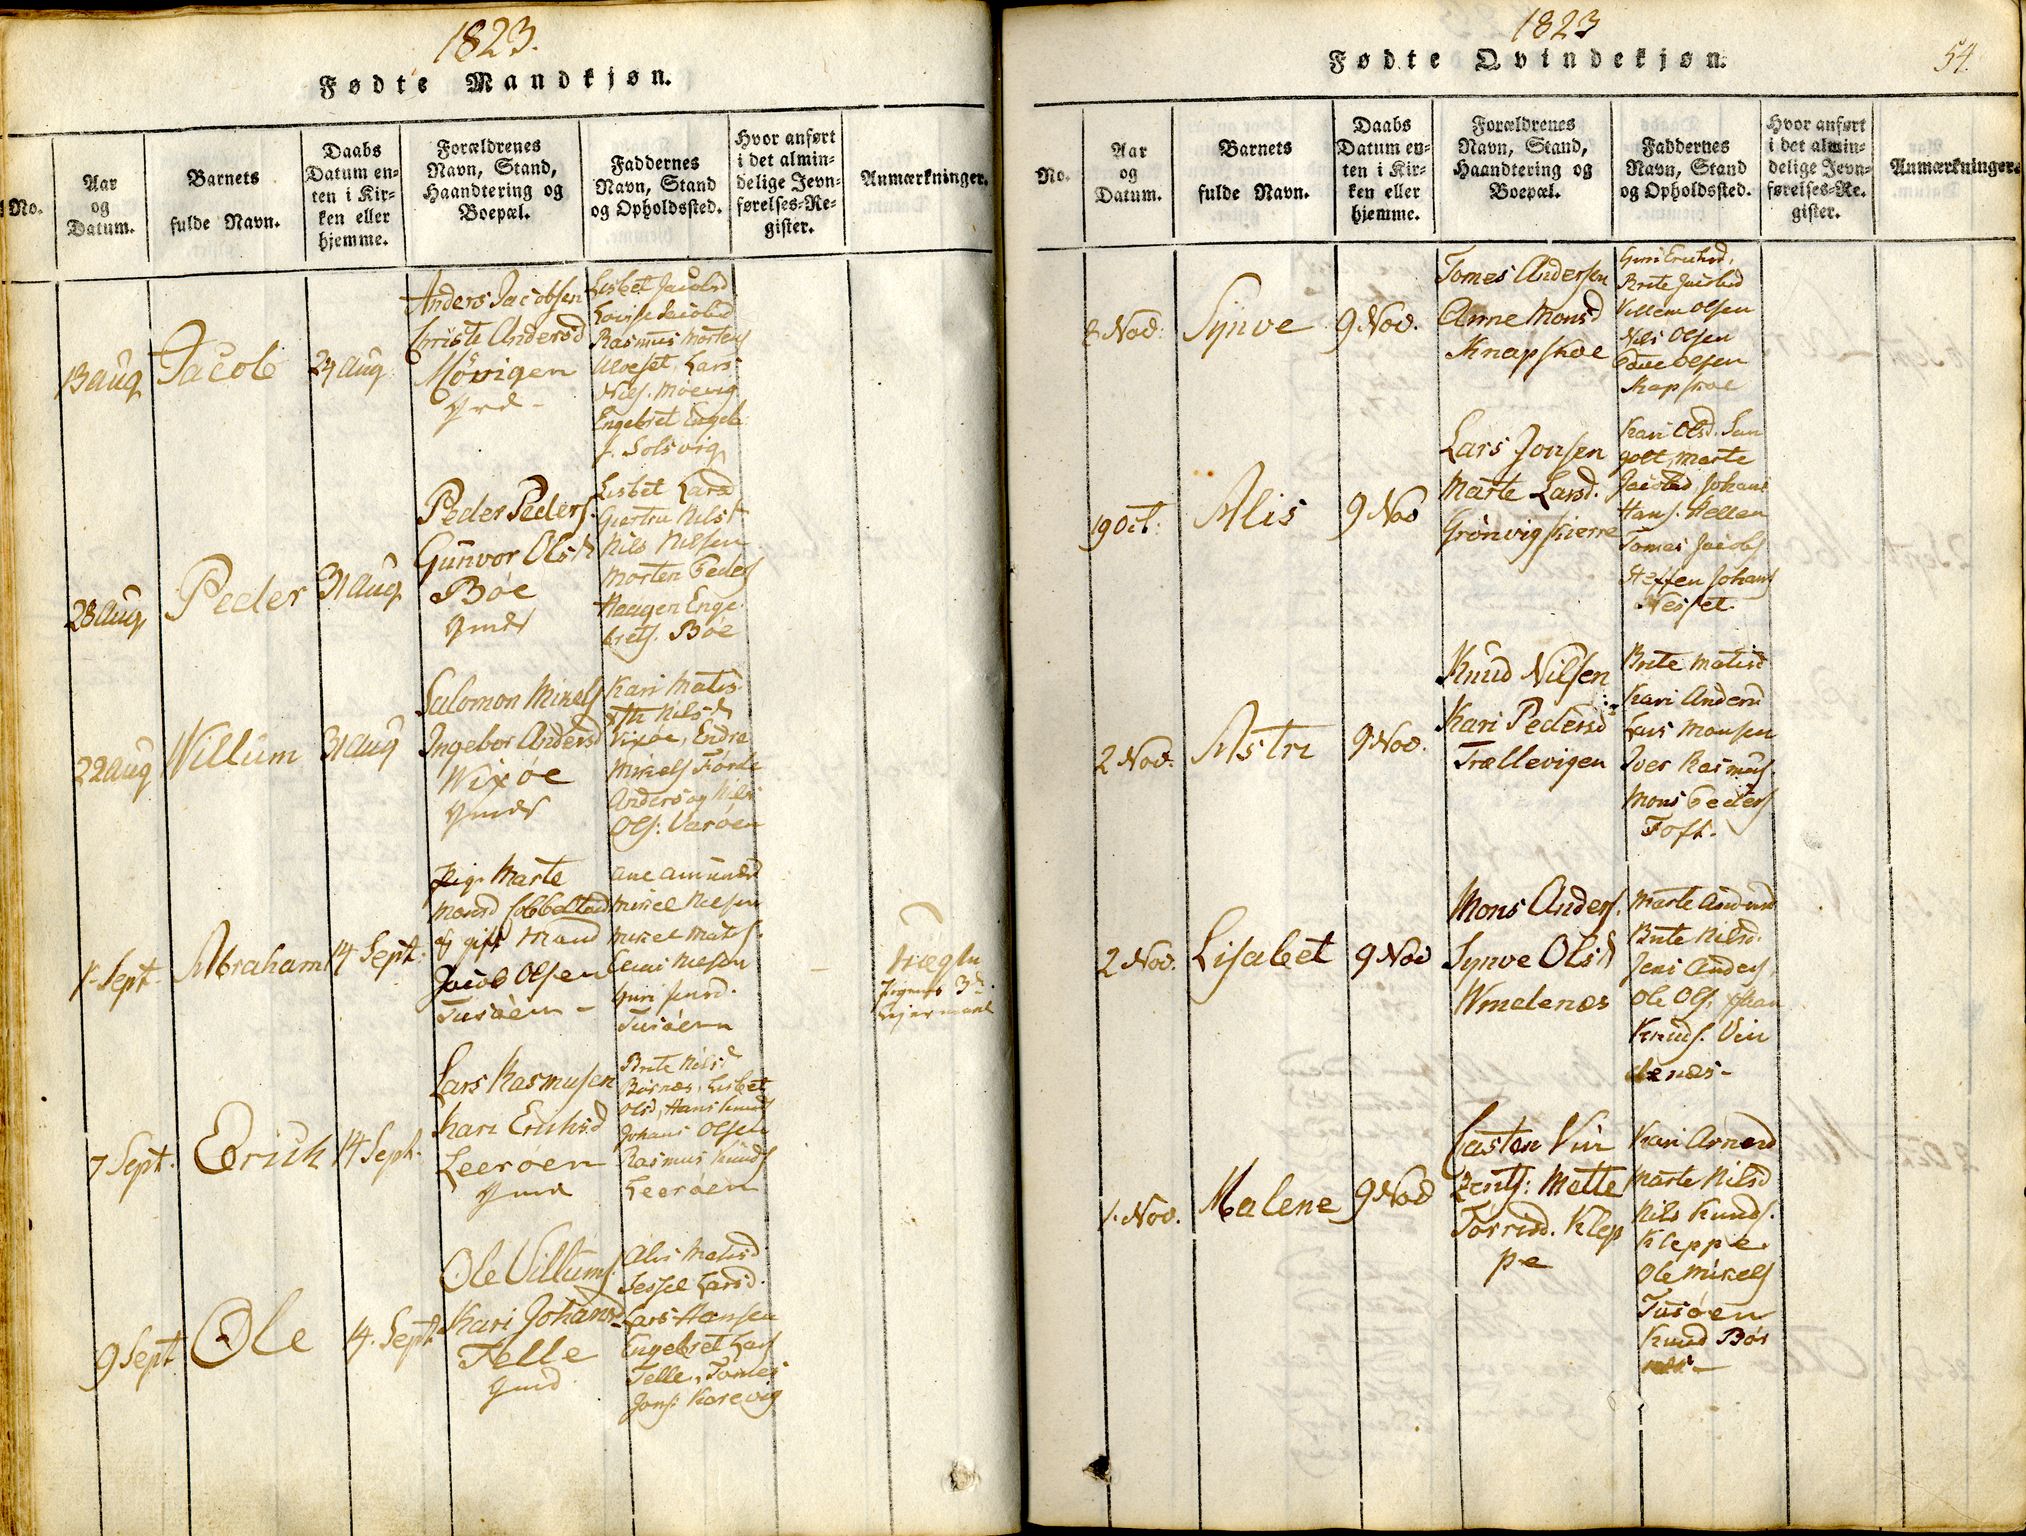 1823.
Fødte Mandkjøn.
No.
Aar
og
Datum.
Barnets
fulde Navn.
Daabs
Datum en-
ten i Kir-
ken eller
hjemme.
Forældrenes
Navn, Stand,
Haandtering og
Boepæl.
Faddernes
Navn, Stand
og Opholdssted.
Hvor anført
i det almin-
delige Jevn-
førelses-Re-
gister.
Anmærkninger.
13 Aug
Jacob
24 Aug
Anders Jacobsen
Christe Andersd
Møvigen
Lisbet Jacobsd
Rasmus Mortens
Alveset, Lars
Nils. Møevig
Engebret Engeb
s. Solsvig
28 Aug
Peder
31 Aug
Peder Peders.
Gunvor Olsd
Bøe
Lisbet Larsd
Giertru Nilsd
Nils Nilsen
Morten Peders
Haagen Enge
brets. Bøe
22 Aug
Willum
31 Aug
Salomon Mikels
Ingebor Andersd
Wixøe
Kari Matis
Nilsd
Vixøe, Endre
Mikels Førde
Anders og Nils
Ols: Varøen
1 Sept.
Abraham
14 Sept.
Pig. Marte
Monsd Cobbeltved
og gift Mand
Jacob Olsen
Tusøen -
Ane Amundsd
Mikel Nilsen
Mikel Matis.
Nilsen
Guri
Tusøen
3d.
Leiermaal
7 Sept.
Erich
14 Sept.
Lars Rasmusen
Kari Erichsd
Leerøen
Brite Nilsd
Børnæs, Lisbet
Olsd, Hans Knuds
Johans Olsen
Rasmus Knuds
Leerøen
9 Sept
Ole
14. Sept
Ole Villums.
Kari Johansd
Telle
Alis Matisd
Sessel Larsd.
Lars Hansen
Engebret Lars
Telle, Tomes
Jons. Korevig
1823
54.
Fødte Qvindekjøn.
No.
Aar
og
Datum.
Barnets
fulde Navn.
Daabs
Datum en-
ten i Kir-
ken eller
hjemme.
Forældrenes
Navn, Stand,
Haandtering og
Boepæl.
Faddernes
Navn, Stand
og Opholdssted.
Hvor anført
i det almin-
delige Jevn-
førelses-Re-
gister.
Anmærkninger.
8 Nov.
Synve
9 Nov.
Tomes Andersen
Anne Monsd
Knapskoe
Guri Erichsd.
Brite Jacobsd
Villem Olsen
Nils Olsen
Olsen
Knapskoe
19 Oct.
Alis
9 Nov
Lars Jonsen
Marte Larsd.
Grönvigskierre
Kari Olsd. San
golt, Marte
Jacobsd, Johans
Hans. Hellen
Tomes Jacobs
Steffen Johans
Nesset.
2 Nov.
Astri
9 Nov.
Knud Nilsen
Kari Pedersd
Trællevigen
Brite Matisd
Kari Andersd
Lars Monsen
Iver Rasmus.
Mons Peders
Toft.
2 Nov.
Lisabet
9 Nov
Mons Anders.
Synve Olsd
Windenæs
Marte Andersd
Brite Nilsd.
Jens Anders
Ole Ols.
Knuds. Vin
denæs-
1. Nov.
Malene
9 Nov
Casten Vin
Zents: Mette
Torrisd. Klep
pe
Kari Arnesd
Marte Nilsd
Nils Knuds.
Kleppe.
Ole Mikels
Tusøen
Knud Bør
næs-